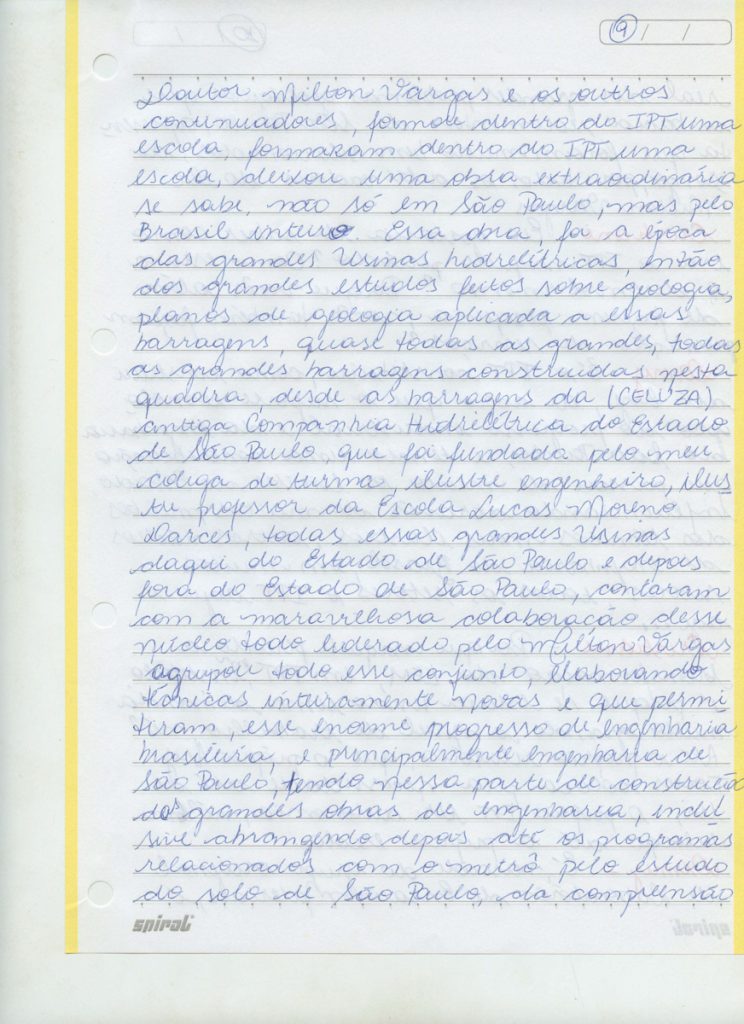 9 / /
Doutor Milton Vargas e os outros
continuadores, formou dentro do IPT uma
escola, formaram dentro do IPT uma
escola, deixou uma obra extraordinária
se sabe, não só em São Paulo, mas pelo
Brasil inteiro. Essa obra, foi a época
das grandes Usinas hidrelétricas, então
dos grandes estudos feitos sobre geologia,
planos de geologia aplicada a essas
barragens, quase todas as grandes, todas
as grandes barragens construídas nesta
quadra desde as barragens da (CELUZA)
antiga Companhia Hidrelétrica do Estado
de São Paulo, que foi fundada pelo meu
colega de turma, ilustre engenheiro, ilus
tre professor da Escola Lucas Moreno
Garces, todas essas grandes Usinas
daqui do Estado de São Paulo e depois
fora do Estado de São Paulo, contaram
com a maravilhosa colaboração desse
núcleo todo liderado pelo Milton Vargas
agrupou todo esse conjunto, elaborando
técnicas inteiramente novas e que permi
tiram, esse enorme progresso de engenharia
brasileira, e principalmente engenharia de
São Paulo, tendo nessa parte de construção
dos grandes obras de engenharia, inclu
sive abrangendo depois até os programas
relacionados com o metrô pelo estudo
do solo de São Paulo, da compreensão
spiral